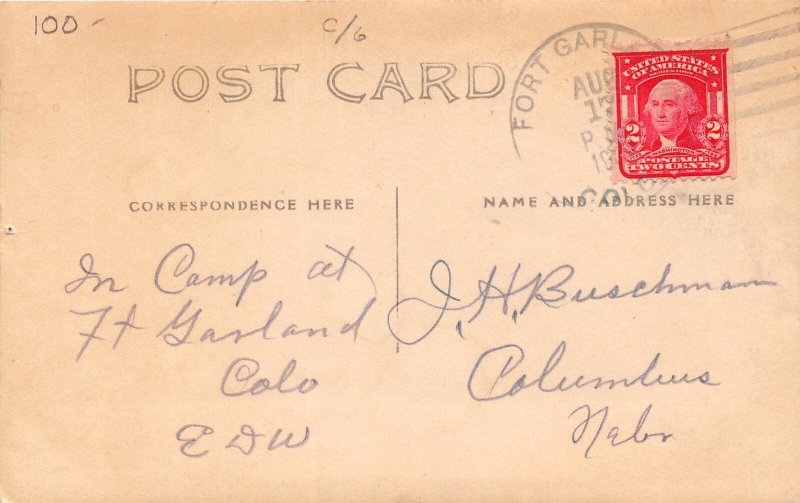 100-
C/6
POST CARD
FORT GARL
AUG
17
P
COL
UNITED STATES
OF AMERICA
2 WASHINGTON 2
POSTAGE
TWO CENTS
CORRESPONDENCE HERE
NAME AND ADDRESS HERE
In Camp at
Ft Garland
Colo
E D W
J. H. Buschman
Columbus
Nebr